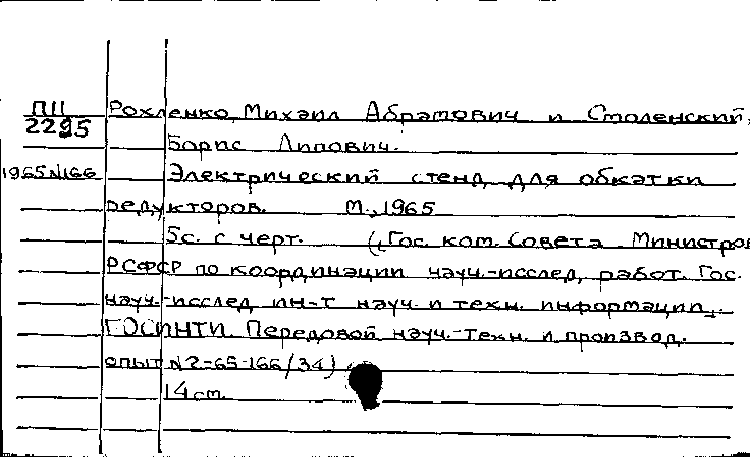 ПП Рохленко, Михаил Абрамович и Смоленский,
2295
Борис Липович.
1965 N166 Электрический стенд для обкатки
редукторов. М., 1965
5с. с черт. (Гос. ком. Совета Министров
РСФСР по координации науч.-исслед. работ. Гос.
науч.-исслед. ин-т науч. и техн. информации.
ГОСИНТИ. Передовой науч.-техн. и производ.
опыт N2-65-166/34)
14 cm.